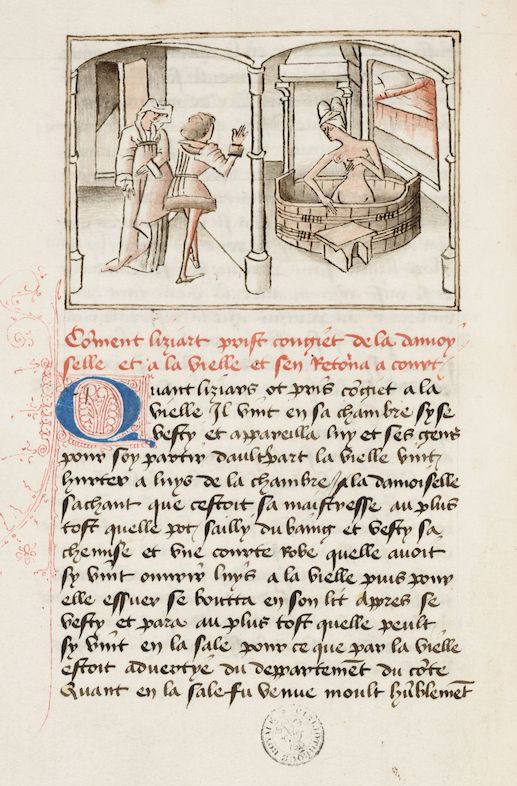 Cōment liziart prist congiet de la damoy
selle et a la vielle et sen retōrna a court
Quant liziars ot pris cōgiet a la
vielle Il vint en sa chambre sy se
vesty et appareilla luy et ses gens
pour soy partir daultpart la vielle vint
hurter a luys de la chambre / la damoiselle
sachant que cestoit sa maistresse au plus
tost quelle pot sailly du baing et vesty sa
chemise et vne courte robe quelle auoit
sy vint ouurir luys a la vielle puis pour
elle essuer se boutta en son lit Apres se
vesty et para au plus tost quelle peult
sy vint en la sale pour ce que par la vielle
estoit aduertye du deppartemēt du cōte
Quant en la sale fu venue moult hūblemēt